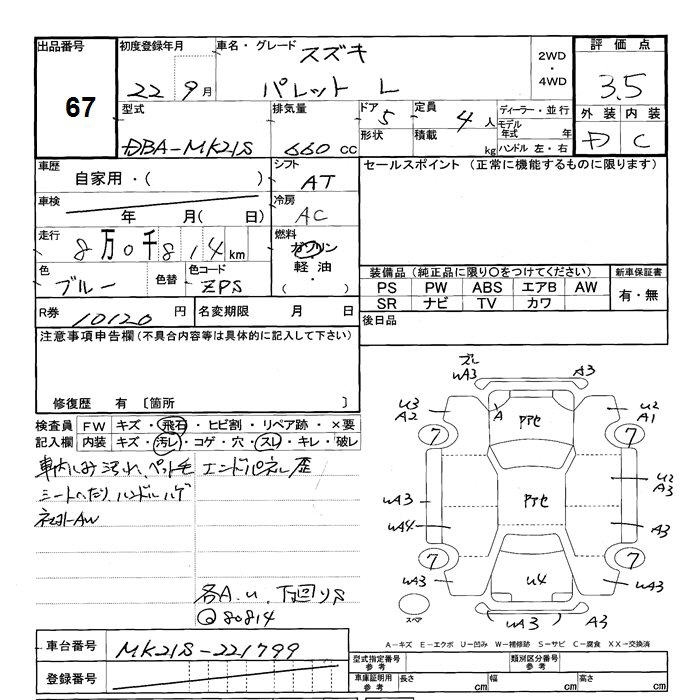 出品番号
67
初度登録年月
22 9月
車名・グレード
スズキ
パレット L
2WD
・
4WD
評価点
3.5
外装 内装
D C
型式
DBA-MK21S
排気量
660 cc
ドア
5
形状
定員
4 人
積載
kg
ディーラー・並行
モデル年式 年
ハンドル 左・右
車歴
自家用・( )
シフト
AT
セールスポイント (正常に機能するものに限ります)
車検
年 月( 日)
冷房
AC
走行
8万0千814km
燃料
ガソリン
軽油
・( )
色
ブルー
色替
色コード
ZPS
装備品 (純正品に限り○をつけてください)
PS PW ABS エアB AW
SR ナビ TV カワ
新車保証書
有・無
R券
10120 円
名変期限 月 日
後日品
注意事項申告欄(不具合内容等は具体的に記入して下さい)
修復歴 有 〔箇所 〕
検査員 FW キズ・飛石・ヒビ割・リペア跡・×要
記入欄 内装 キズ・汚レ・コゲ・穴・スレ・キレ・破レ
車内しみ汚れ、ペット毛 エンドパネル歪
シートへたり、ハンドルハゲ
ネオコートAW
各A.u. 下回りS
@80814
ズレ
uA3 A3
u3
A2
A
アアセ
u2
A1
7 7
uA3
uA4
アセ
u2
A3
A3
7 7
uA3 u4 uA3
uA3 A3
スペア
A-キズ E-エクボ U-凹み W-補修跡 S-サビ C-腐食 XX-交換済
車台番号
MK21S-221799
登録番号
型式指定番号
参考
類別区分番号
参考
車庫証明用
参考
長さ cm 幅 cm 高さ cm